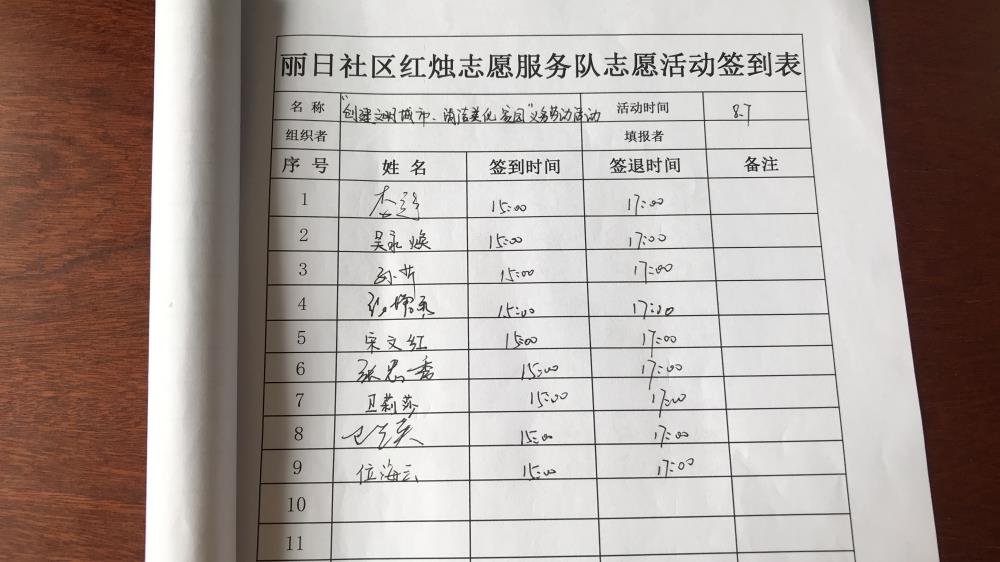 丽日社区红烛志愿服务队志愿活动签到表
名称 "创建文明城市、清洁美化家园"义务劳动活动 活动时间 8.7
组织者 填报者
序号 姓名 签到时间 签退时间 备注
1 15:00 17:00
2 吴永焕 15:00 17:00
3 孙茹 15:00 17:00
4 15:00 17:00
5 宋文红 15:00 17:00
6 张忠秀 15:00 17:00
7 卫莉莎 15:00 17:00
8 15:00 17:00
9 位海云 15:00 17:00
10
11